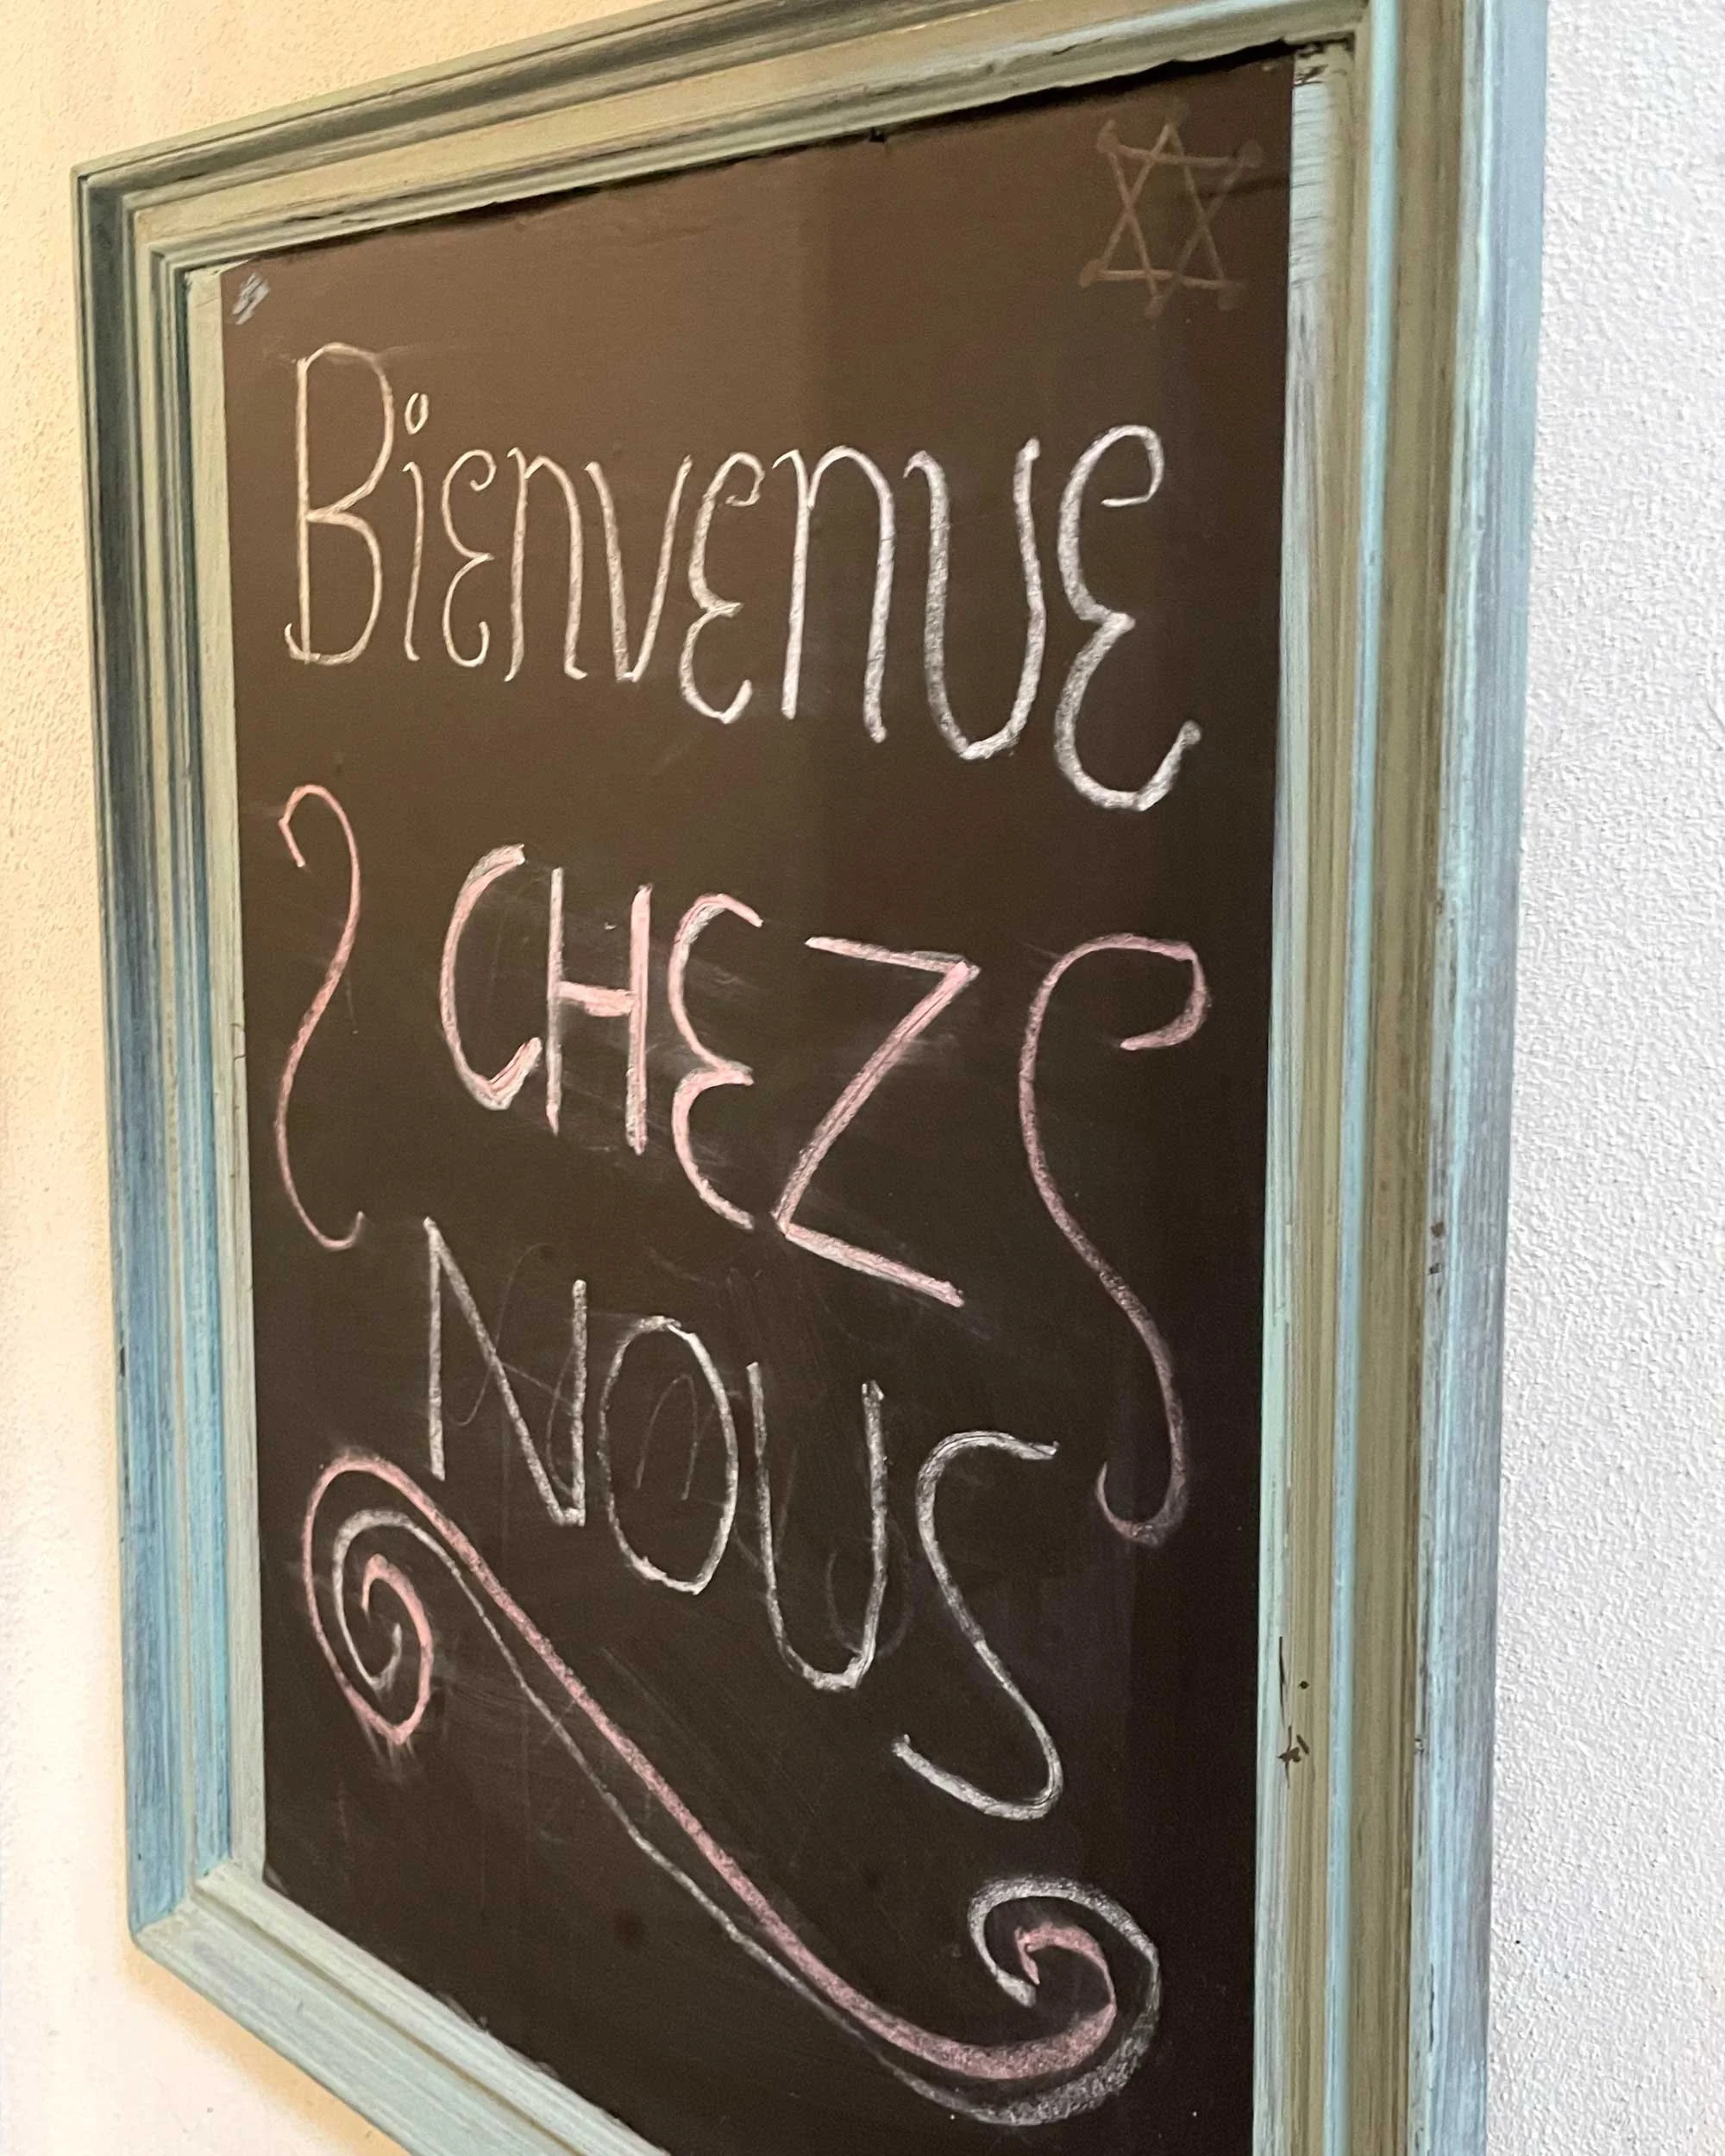 Bienvenue
CHEZ
NOUS